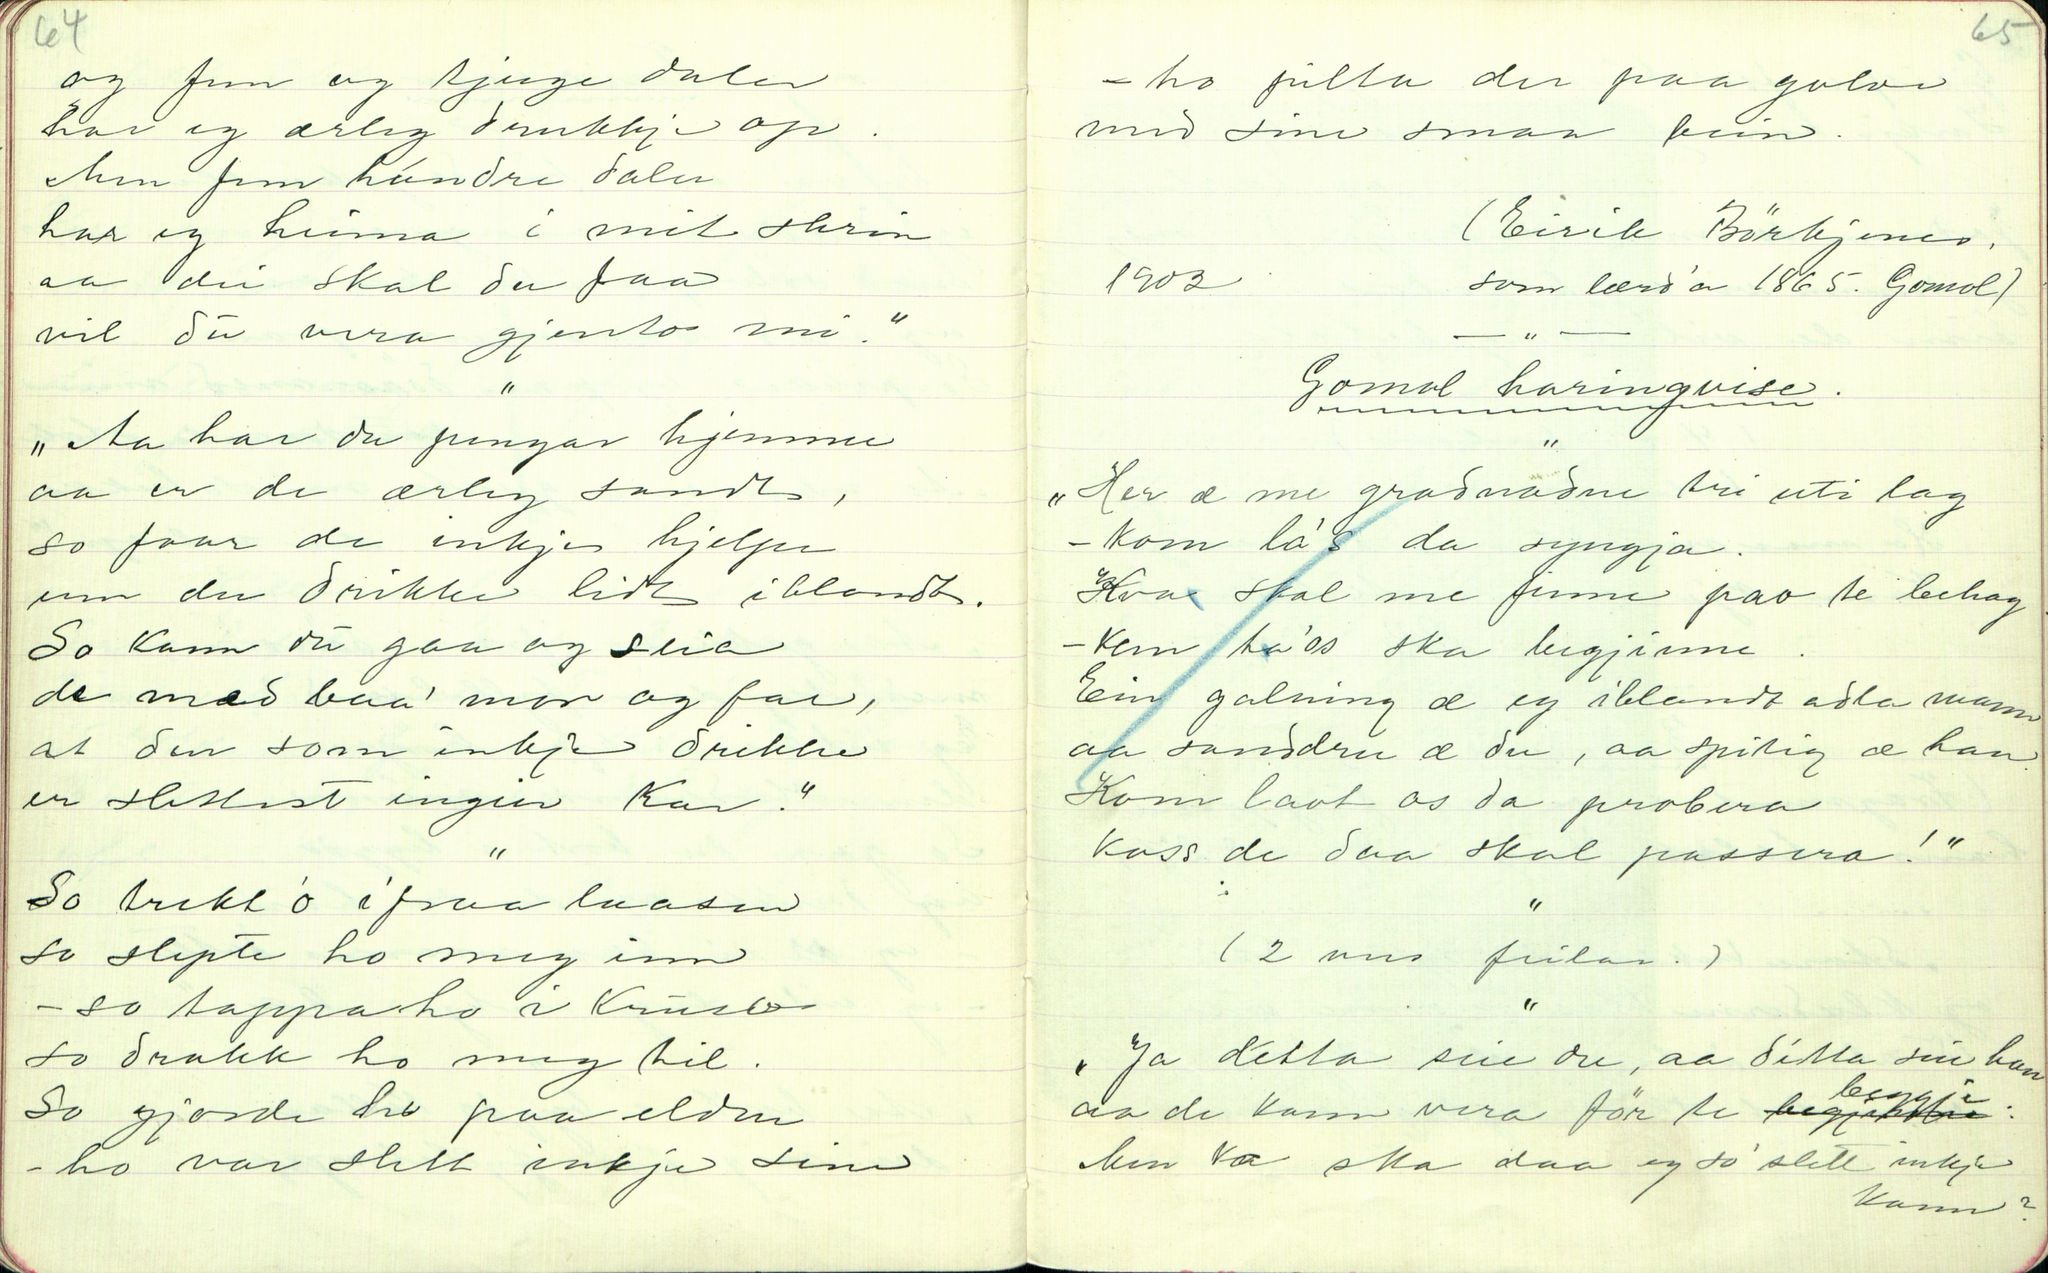 64
og fem og tjuge daler
har eg ærleg drukkje op.
Men fem hundre daler
har eg heima i mit skrin
aa dei skal du faa
vil du vera gjento mi."
"
„Aa har du pengar hjemme
aa er de ærleg sandt,
so faar de inkje hjelpe
um du drikke lidt iblandt.
So kann du gaa og seia
de med baa' mor og far,
at den som inkje drikke
er slettest ingien kar."
"
So trekt 'o ifraa laasen
so slepte ho meg inn
- so tappa ho i kruso
so drakk ho meg til.
So gjorde ho paa elden
- ho var slett inkje sein
65
- ho pilta der paa golve
med sine smaa bein.
(Eirik Börkjenes,
1903 som lærd'a 1865. Gomol)
— „ —
Gomol haringvise.
"
„Her æ me gradnadne tri uti lag
- kom lá's da syngja.
Kva skal me finne pao te behag
- kem ta'os ska begjinne.
Ein galning æ eg iblandt adla mann
aa sanddru æ du, aa spitig æ han.
Kom laot os da probera
koss de daa skal passera!"
"
(2 vers feilar.)
"
„Ja detta seie du, aa ditta sei han
aa de kann vera før te beggji.
Men ka ska daa eg so' slett inkje
kann?